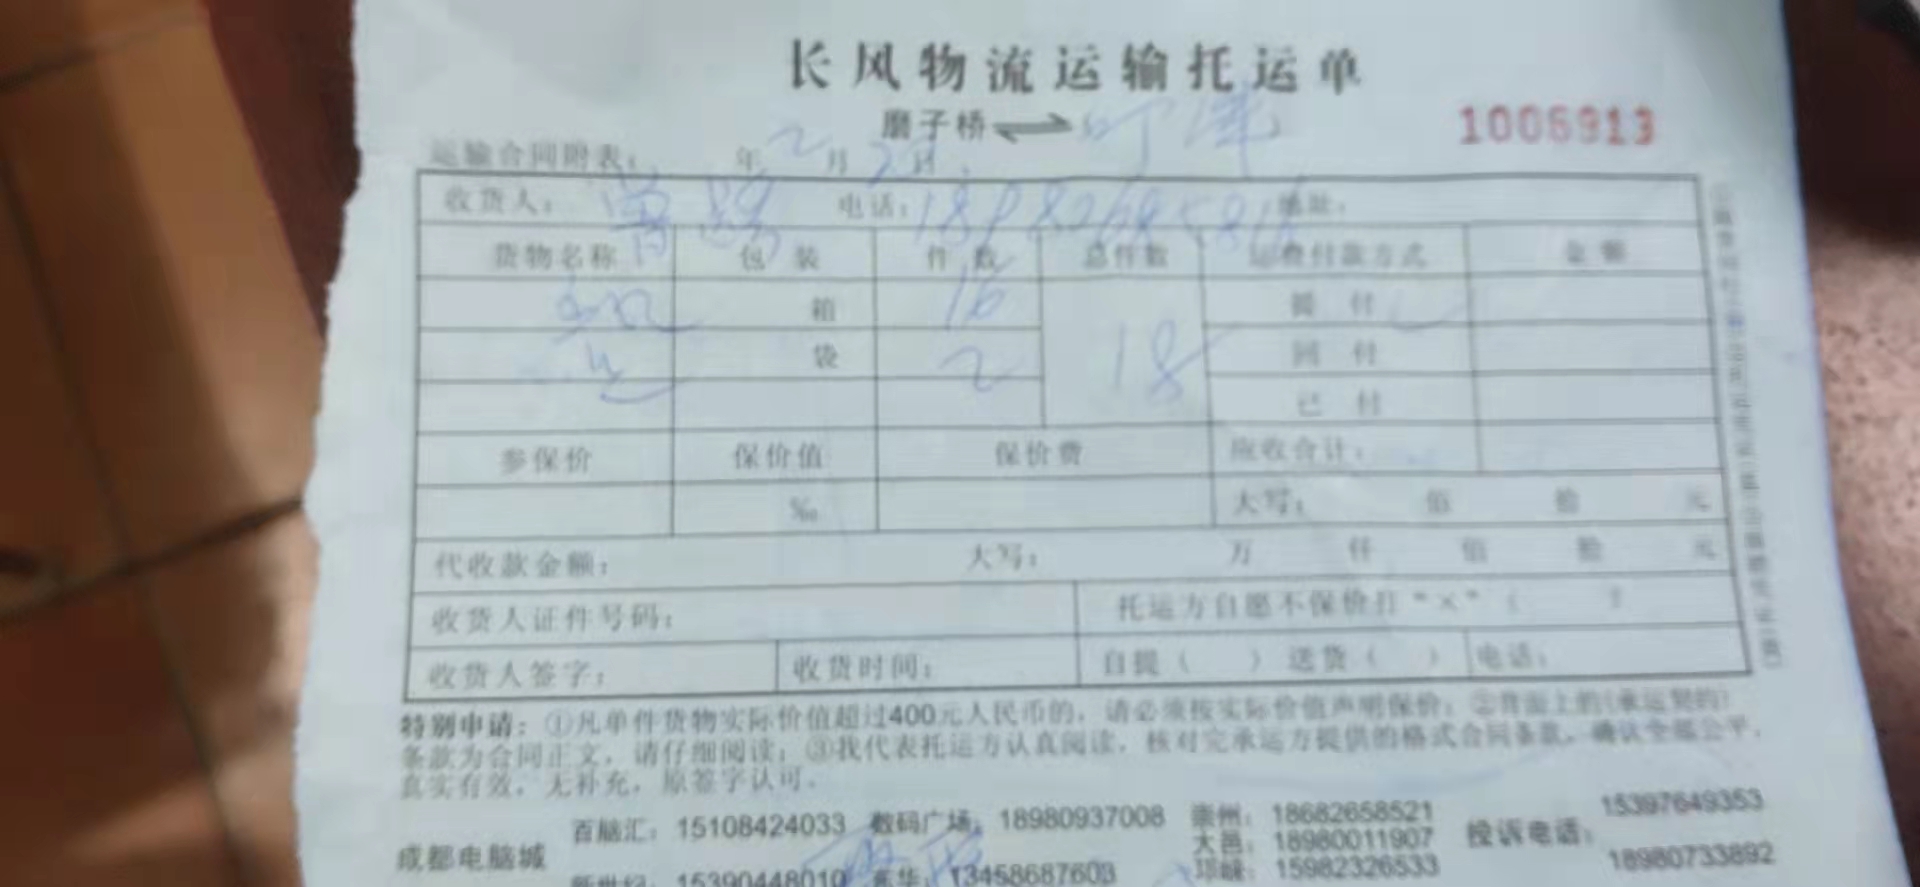 长风物流运输托运单
磨子桥⇌
1006913
运输合同附表: 年 2 月 日
收货人: 曾 电话: 地址:
货物名称 包装 件数 总件数 运费付款方式 金额
箱 16 18 提付
袋 2 回付
已付
参保价 保价值 保价费 应收合计:
‰ 大写: 佰 拾 元
代收款金额: 大写: 万 仟 佰 拾 元
收货人证件号码: 托运方自愿不保价打“×”( )
收货人签字: 收货时间: 自提( ) 送货( ) 电话:
特别申请:①凡单件货物实际价值超过400元人民币的,请必须按实际价值声明保价;②背面上的(承运契约)
条款为合同正文,请仔细阅读;③我代表托运方认真阅读,核对完承运方提供的格式合同条款,确认全部公平,
真实有效,无补充,原签字认可.
成都电脑城 百脑汇: 15108424033 数码广场: 18980937008 崇州: 18682658521 投诉电话: 15397649353
大邑: 18980011907
新世纪: 15390448010 东华: 13458687603 邛崃: 15982326533 18980733892